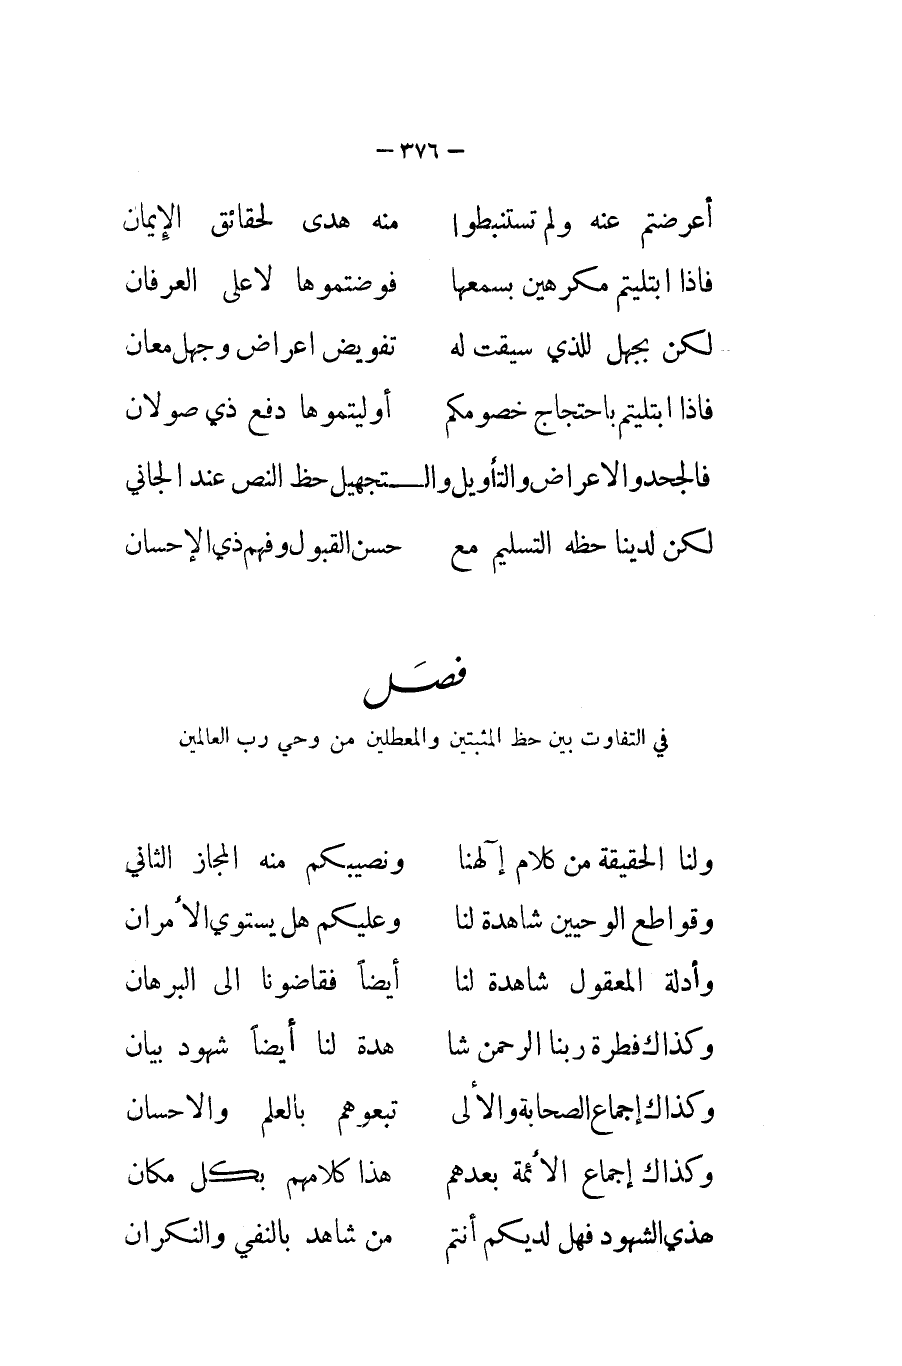 – ٣٧٦ –
أعرضتم عنه ولم تستنبطوا منه هدى لحقائق الإيمان
فاذا ابتليتم مكرهين بسمعها فوضتموها لا على العرفان
لكن بجهل للذي سيقت له تفويض اعراض وجهل معان
فاذا ابتليتم باحتجاج خصومكم أوليتموها دفع ذي صولان
فالجحد والاعراض والتأويل والـــتجهيل حظ النص عند الجاني
لكن لدينا حظه التسليم مع حسن القبول وفهم ذي الإحسان
فصَل
في التفاوت بين حظ المثبتين والمعطلين من وحي رب العالمين
ولنا الحقيقة من كلام إلٓهنا ونصيبكم منه المجاز الثاني
وقواطع الوحيين شاهدة لنا وعليكم هل يستوي الأمران
وأدلة المعقول شاهدة لنا أيضاً فقاضونا الى البرهان
وكذاك فطرة ربنا الرحمن شا هدة لنا أيضاً شهود بيان
وكذاك إجماع الصحابة والألى تبعوهم بالعلم والاحسان
وكذاك إجماع الأئمة بعدهم هذا كلامهم بكل مكان
هذي الشهود فهل لديكم أنتم من شاهد بالنفي والنكران